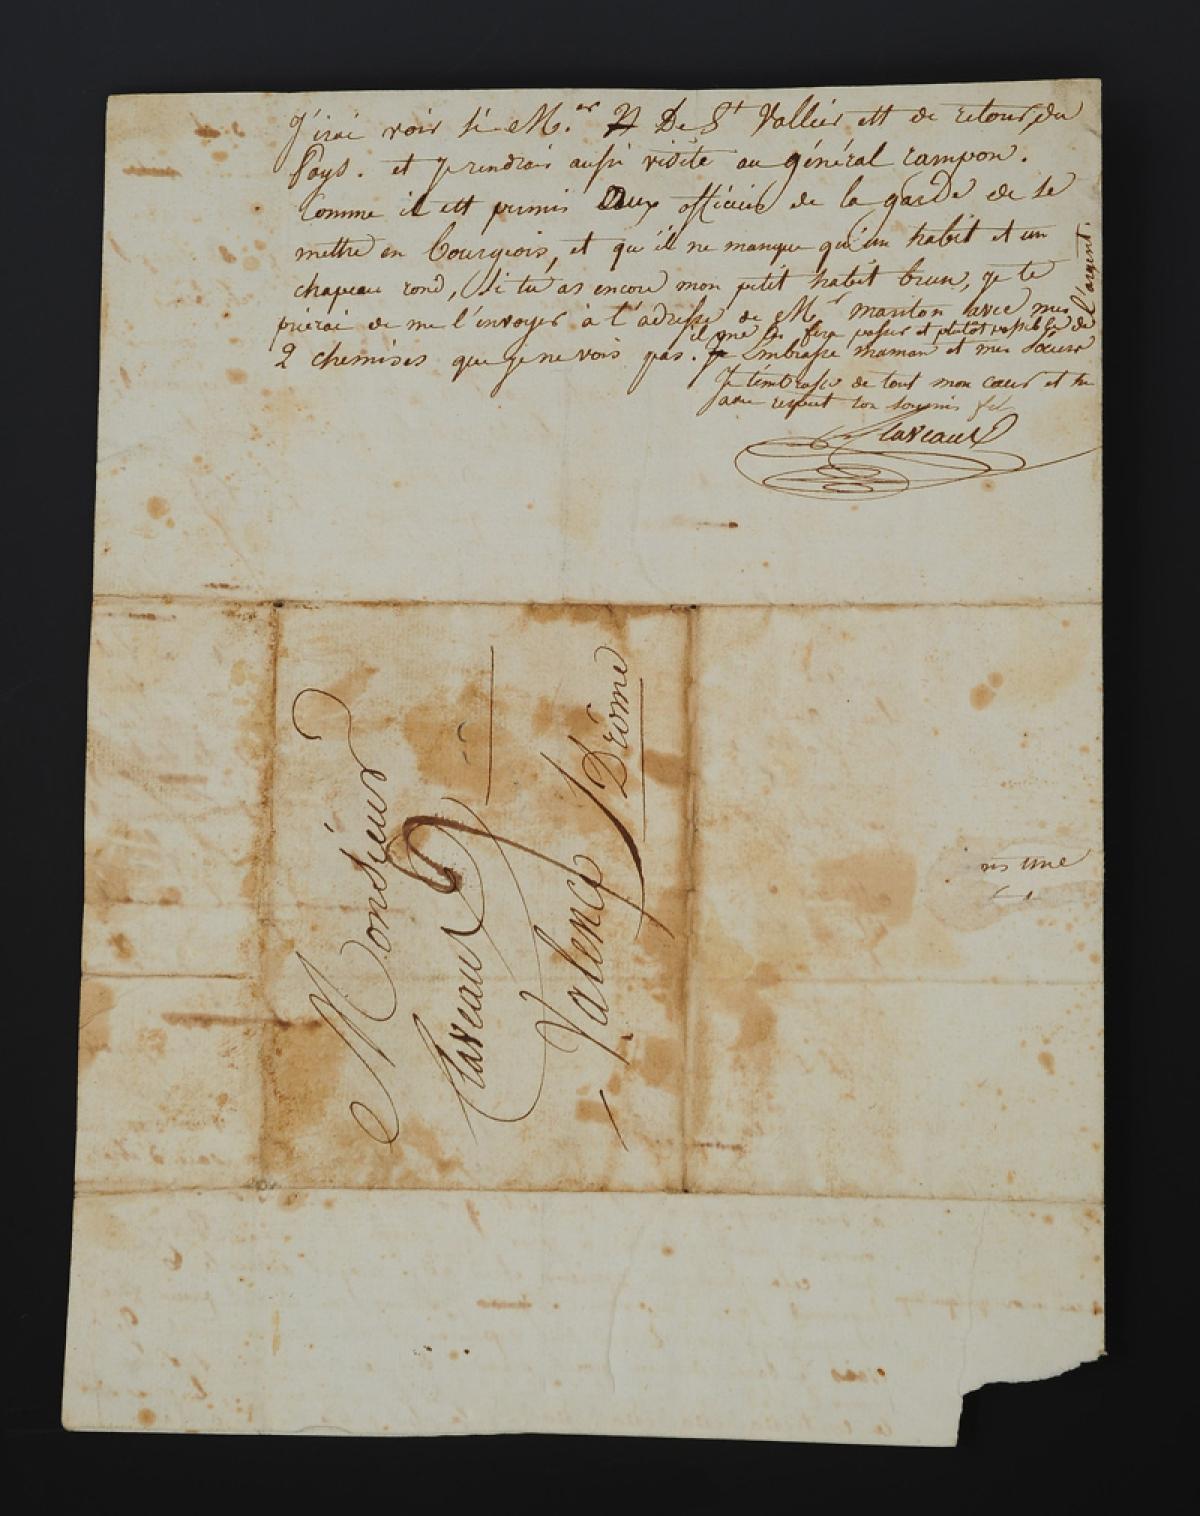 J'irai voir si Mer De St Vallier ett de retour, du
Pays. et Je rendrai aussi visite au général rampon.
Comme il ett permis Aux officiers de la garde de se
mettre en bourgeois, et qu'il ne manque qu'un habit et un
chapeau rond, Si tu as encore mon petit habit brun, je te
prierai de me l'envoyer à l'adresse de Mr mariton avec mes
2 chemises que je ne vois pas. il me les fera passer et plutôt possible de
l'argent.
J'embrasse maman et mes soeurs
Je t'embrasse de tout mon coeur et suis
avec respect ton soumis fils
Claveaux
Monsieur
Claveaux
Valence
Drôme
ris une